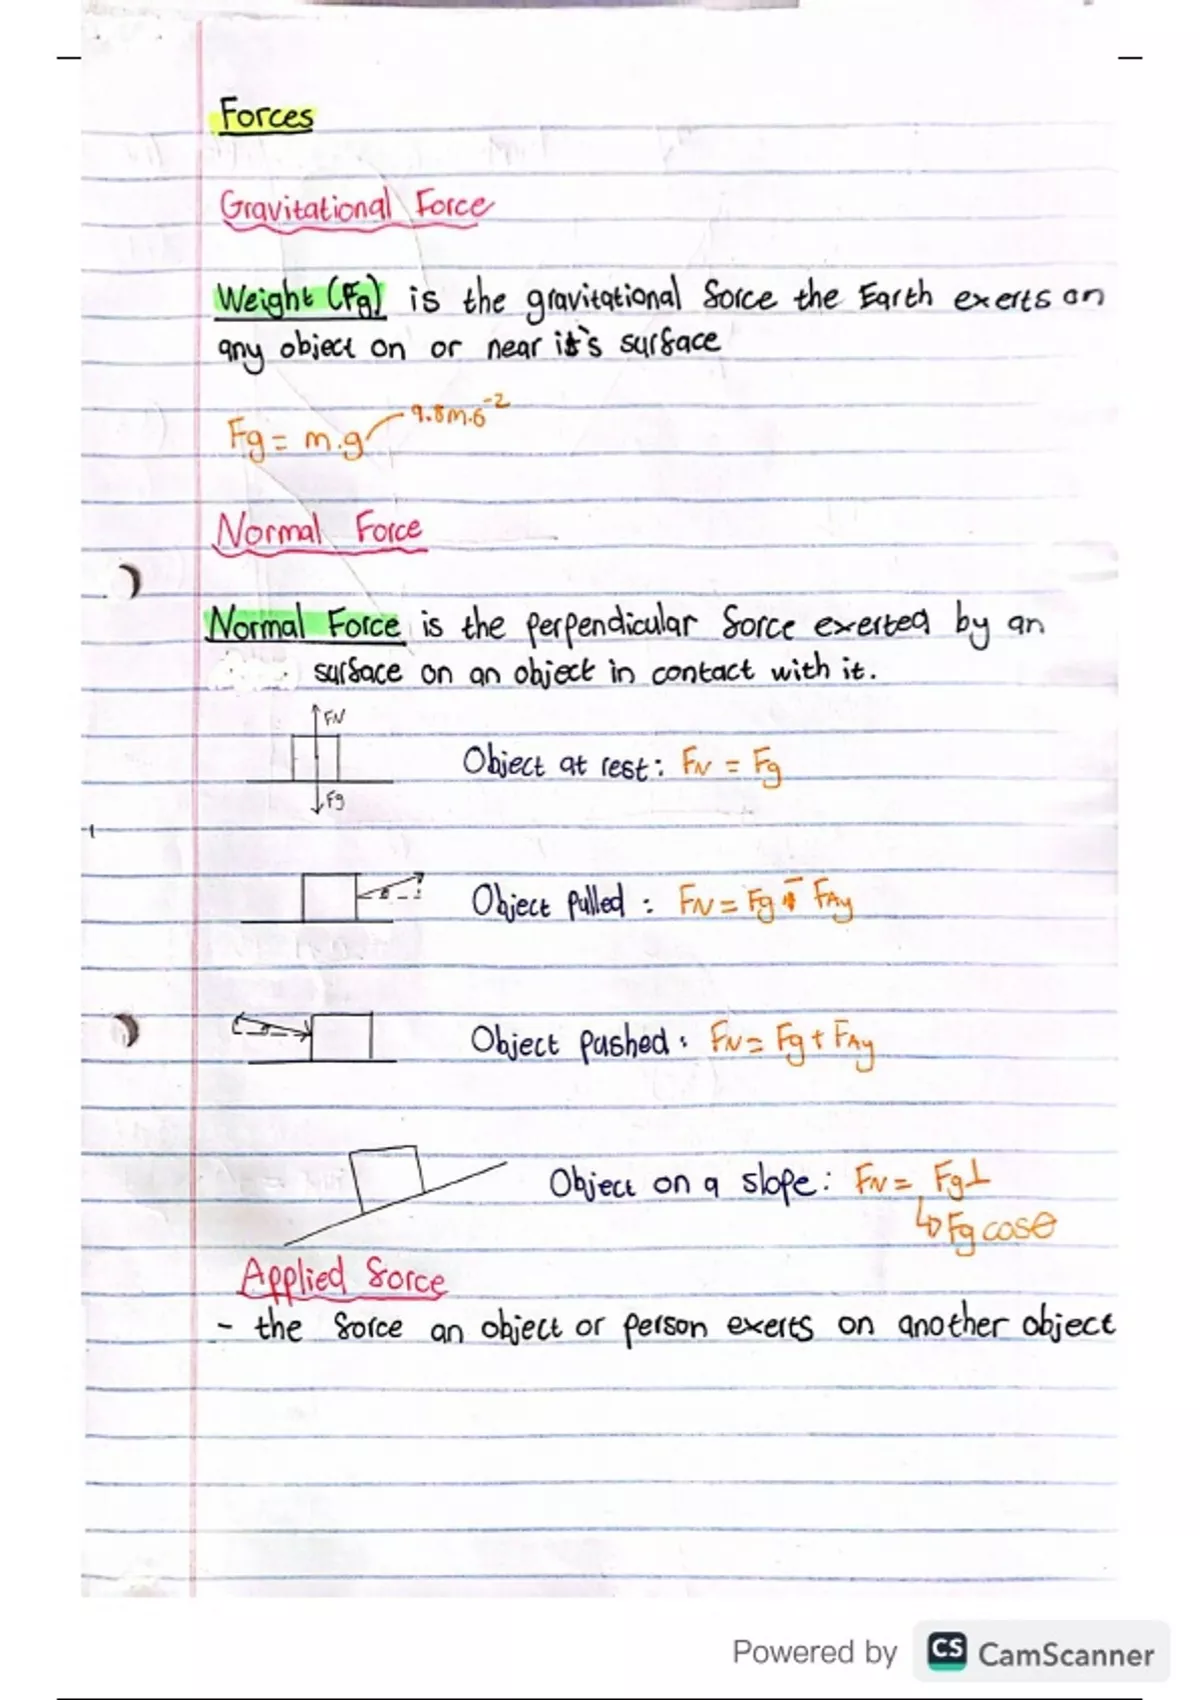 Forces
Gravitational Force
Weight (Fg) is the gravitational force the Earth exerts on
any object on or near it's surface
Fg = m.g 9.8m.s⁻²
Normal Force
Normal Force is the perpendicular force exerted by an
surface on an object in contact with it.
FN
Object at rest: FN = Fg
Fg
Object pulled : FN = Fg - FAy
θ
Object pushed : FN = Fg + FAy
θ
Object on a slope : FN = Fg⊥
↳ Fg cosθ
Applied force
- the force an object or person exerts on another object
Powered by CS CamScanner